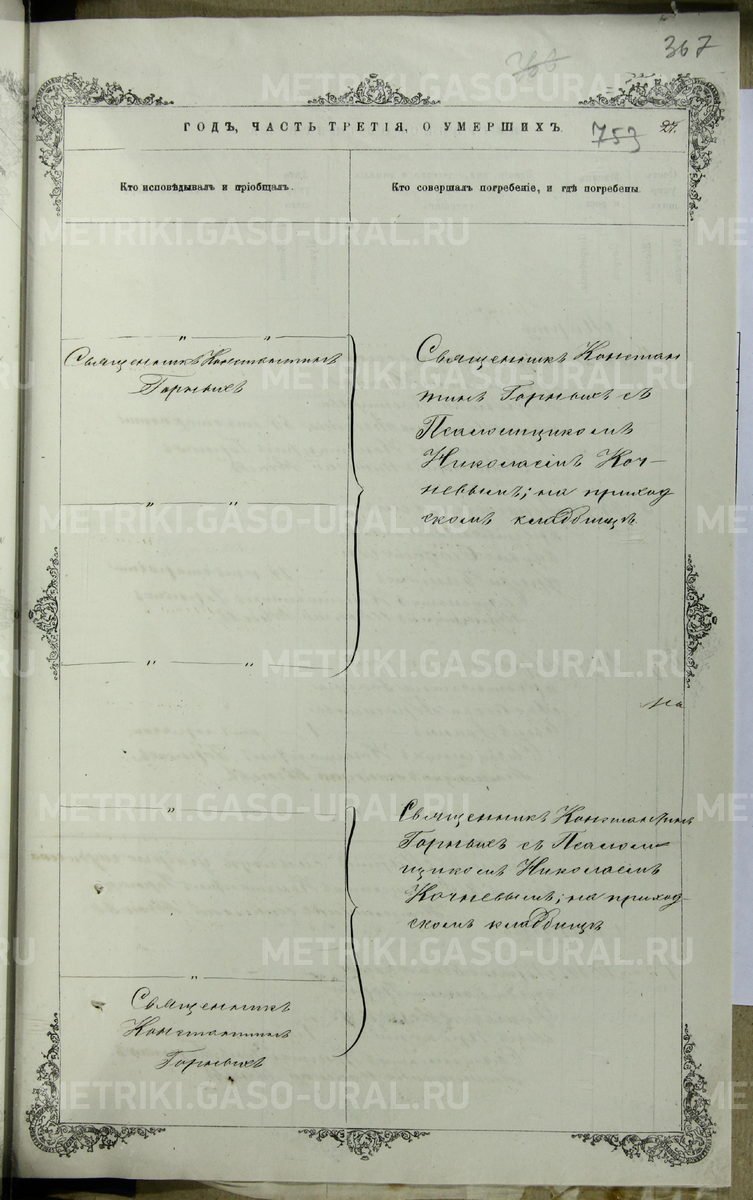 367
ГОДЪ, ЧАСТЬ ТРЕТІЯ, О УМЕРШИХЪ.
753
27.
Кто исповѣдывалъ и пріобщалъ.
Кто совершалъ погребеніе, и гдѣ погребены.
" "
Священникъ Константинъ
Горныхъ
" "
" "
"
"
Священникъ
Константинъ
Горныхъ
Священникъ Констан
тинъ Горныхъ съ
Псаломщикомъ
Николаемъ Коч-
невымъ; на приход
скомъ кладбищѣ
На
Священникъ Константинъ
Горныхъ съ Псалом
щикомъ Николаемъ
Кочневымъ; на приход-
скомъ кладбищѣ
METRIKI.GASO-URAL.RU